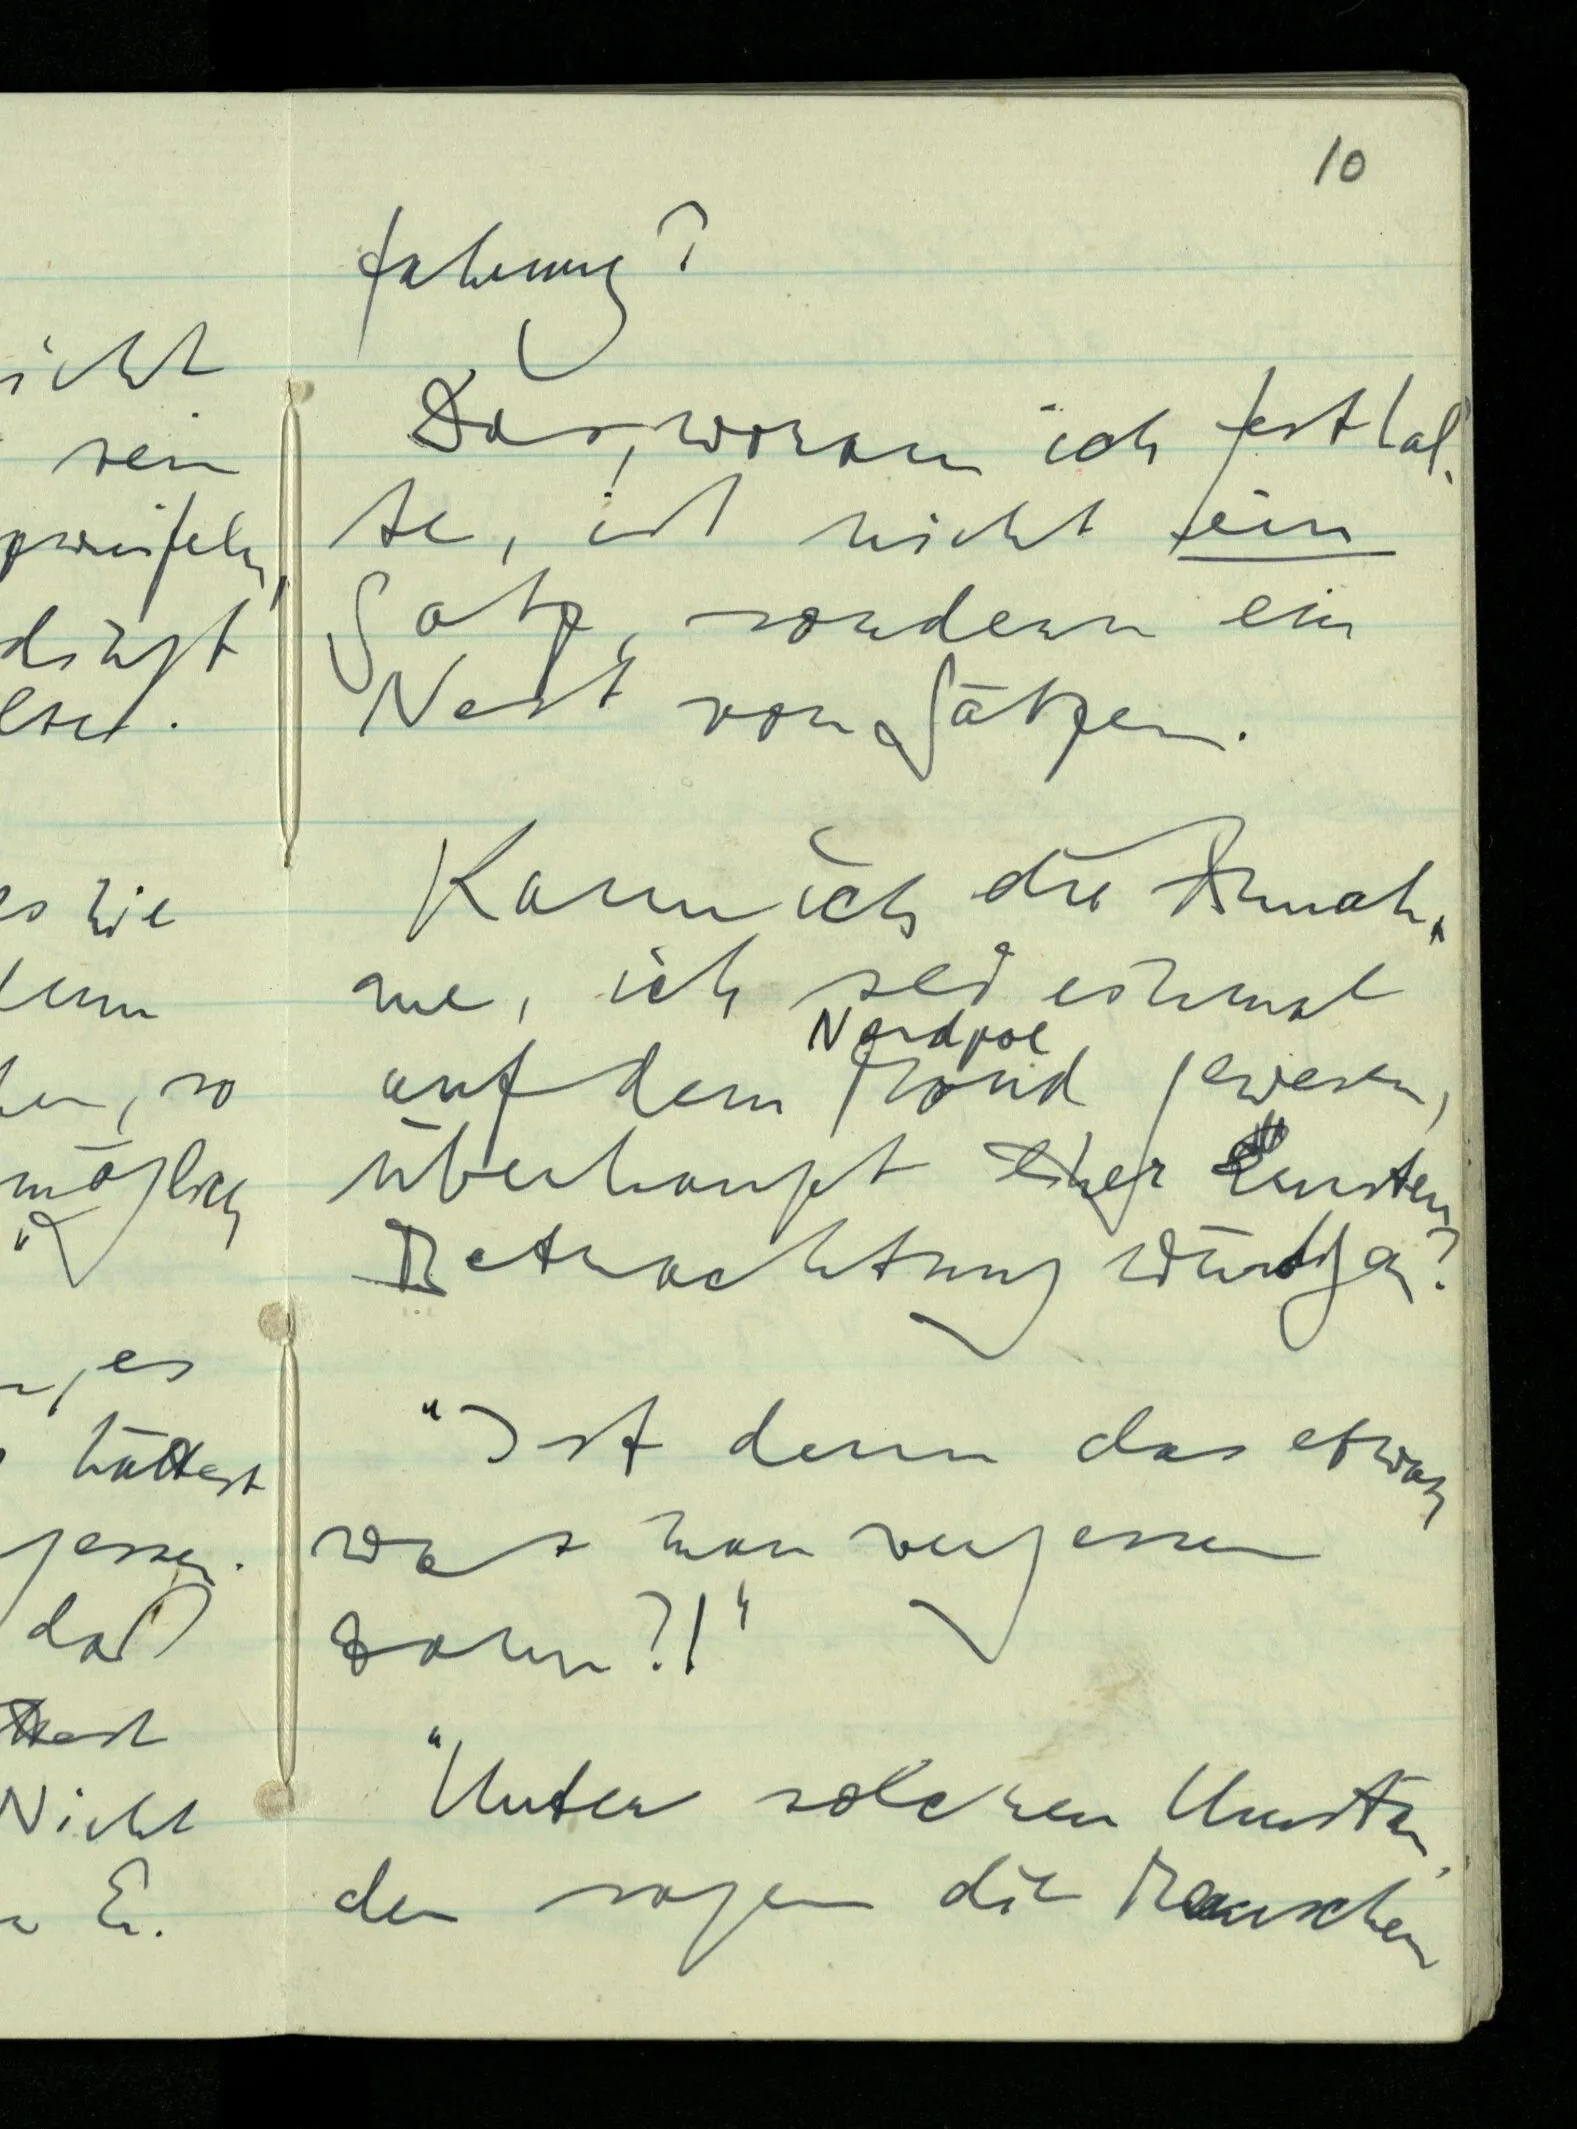 10
icht
sein
zweifeln,
dürft
es wie
denn
so
möglich
es
hättest
gessen.
daß
Nicht
E.
fahrung?
Das, woran ich festhal-
te, ist nicht ein
Satz, sondern ein
Nest von Sätzen.
Kann ich die Annah-
me, ich sei einmal
Nordpol
auf dem Mond gewesen,
überhaupt einer ernsten
Betrachtung würdigen?
"Ist denn das etwas
was man vergessen
kann?!"
"Unter solchen Umstän-
den sagen die Menschen